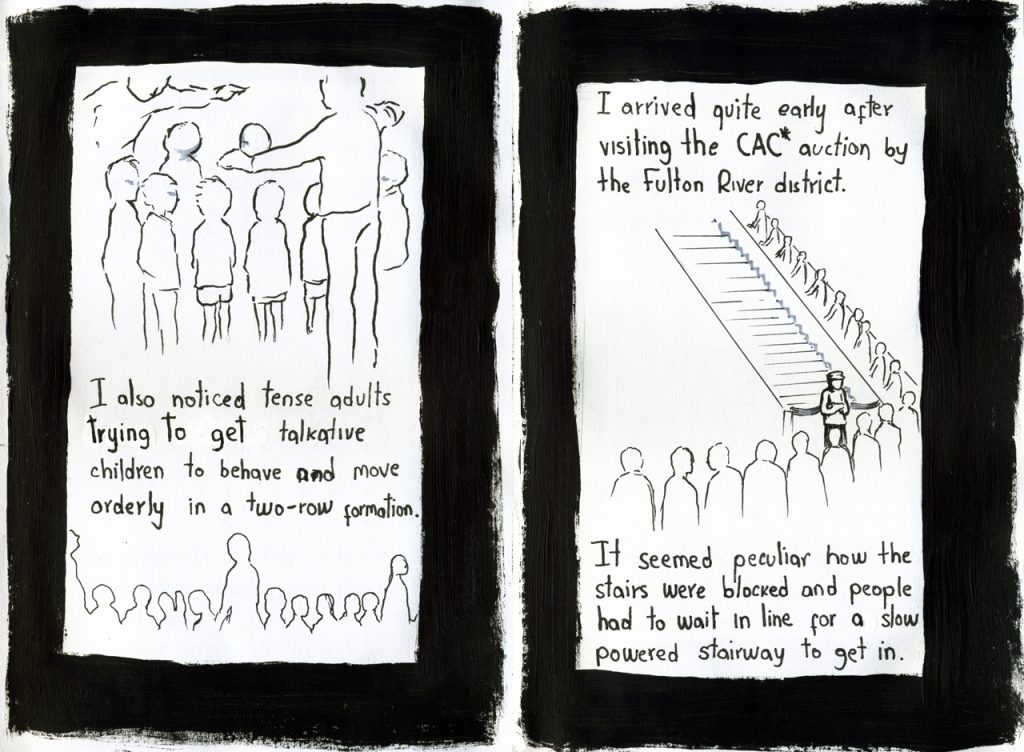 I also noticed tense adults
trying to get talkative
children to behave and move
orderly in a two-row formation.
I arrived quite early after
visiting the CAC* auction by
the Fulton River district.
It seemed peculiar how the
stairs were blocked and people
had to wait in line for a slow
powered stairway to get in.